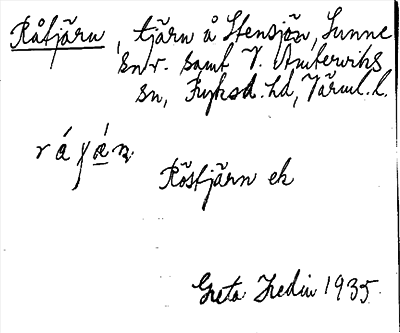 Råtjärn, tjärn å Stensjön, Sunne
snr. samt V. Ämterviks
sn, Fryksd. hd, Värml. l.
Röstjärn ek
Greta Hedin 1935.